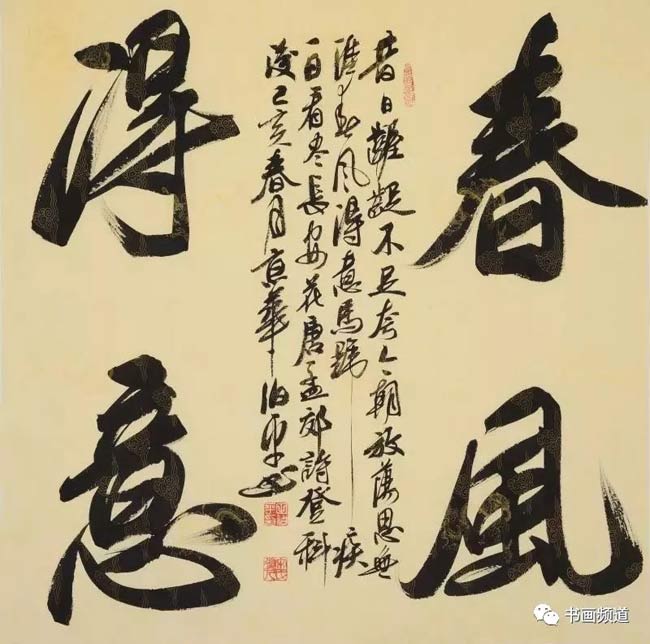 春風
得意
昔日齷齪不足夸今朝放蕩思無
涯春风得意馬蹄疾
一日看尽長安花唐孟郊詩登科
後己亥春月京華
书画频道